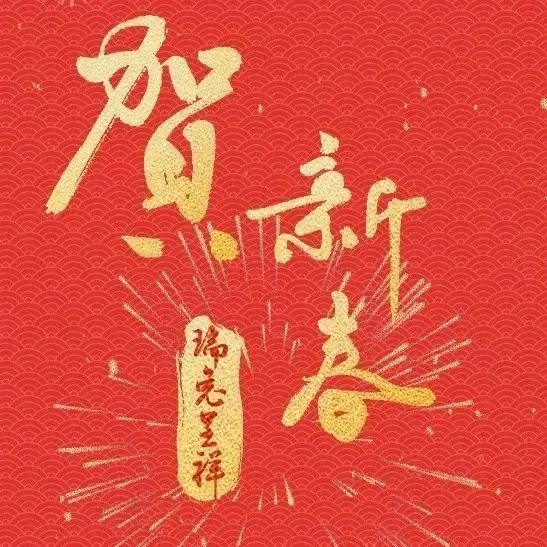 贺新春
瑞兔呈祥